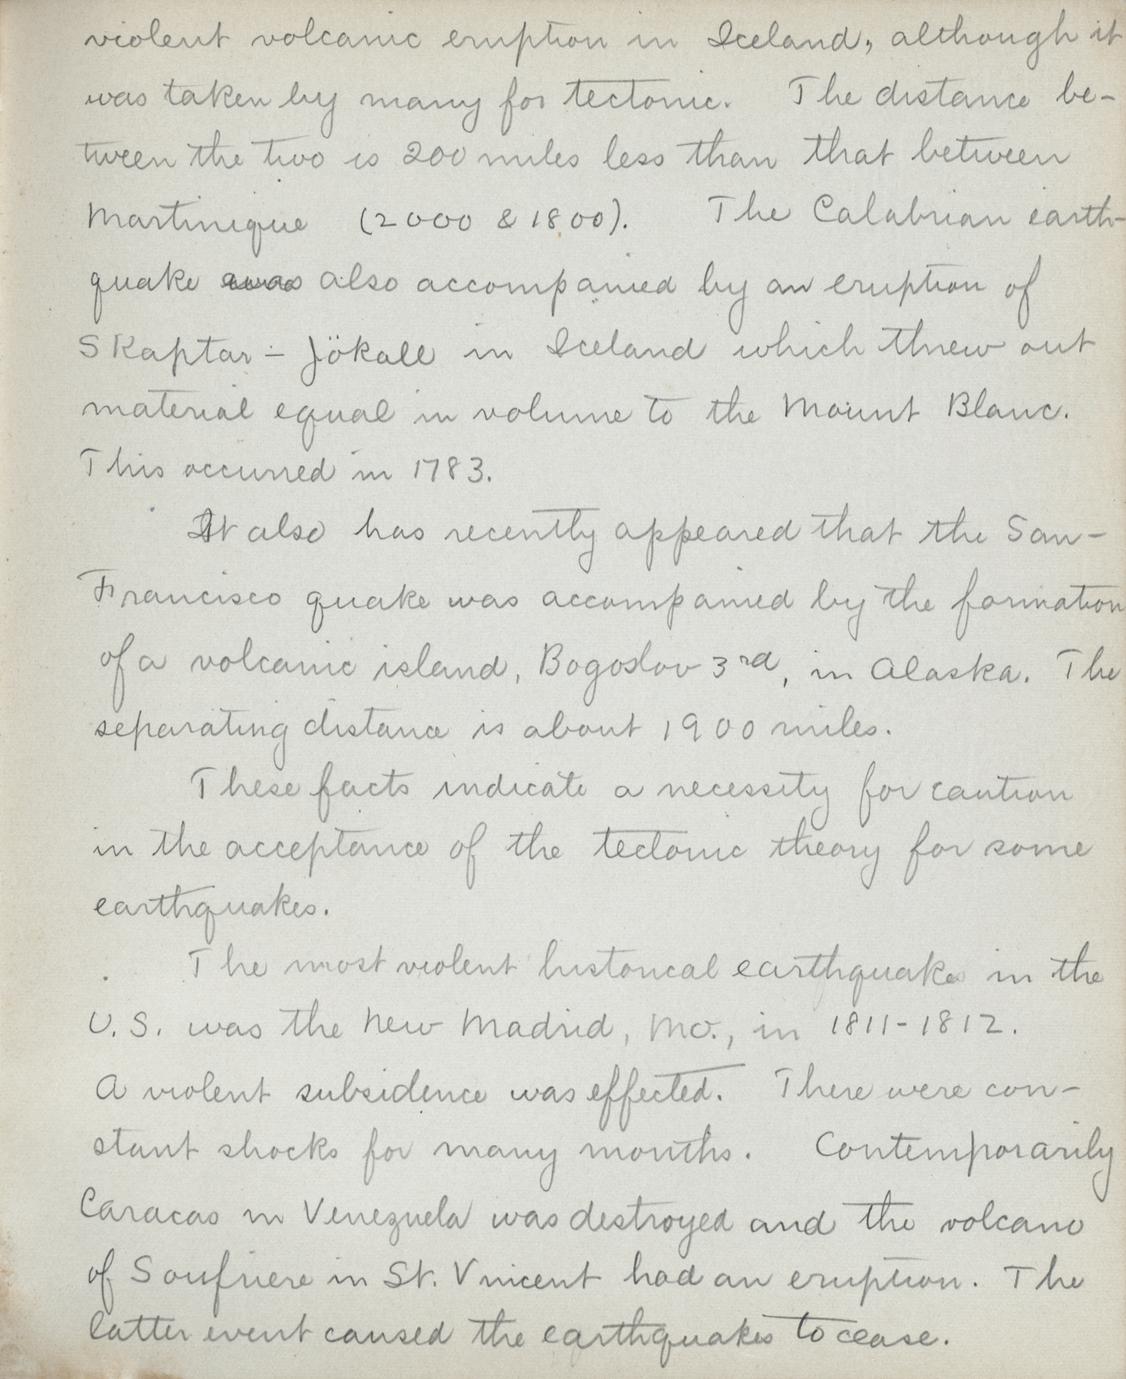 violent volcanic eruption in Iceland, although it
was taken by many for tectonic. The distance be-
tween the two is 200 miles less than that between
Martinique (2000 & 1800). The Calabrian earth-
quake was also accompanied by an eruption of
Skaptar - Jökull in Iceland which threw out
material equal in volume to the Mount Blanc.
This occurred in 1783.
It also has recently appeared that the San-
Francisco quake was accompanied by the formation
of a volcanic island, Bogoslov 3rd, in Alaska. The
separating distance is about 1900 miles.
These facts indicate a necessity for caution
in the acceptance of the tectonic theory for some
earthquakes.
The most violent historical earthquake in the
U.S. was the New Madrid, Mo., in 1811-1812.
A violent subsidence was effected. There were con-
stant shocks for many months. Contemporarily
Caracas in Venezuela was destroyed and the volcano
of Soufriere in St. Vincent had an eruption. The
latter event caused the earthquakes to cease.